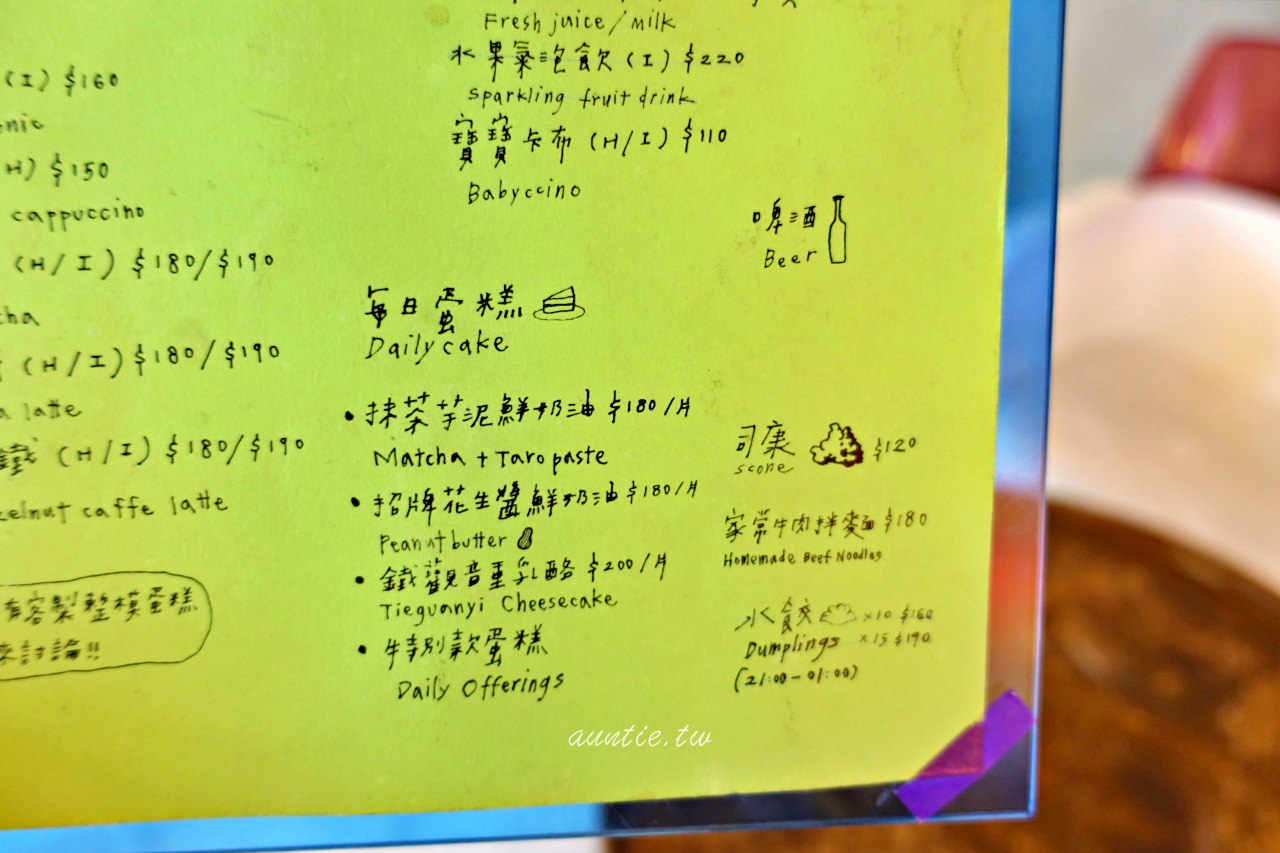 (I) $160
(H) $150
cappuccino
(H/I) $180/$190
(H/I) $180/$190
latte
鐵 (H/I) $180/$190
caffe latte
有客製整模蛋糕
來討論!!
Fresh juice/milk
水果氣泡飲 (I) $220
Sparkling fruit drink
寶寶卡布 (H/I) $110
Babyccino
每日蛋糕
Daily cake
• 抹茶芋泥鮮奶油 $180/片
Matcha + Taro paste
• 招牌花生醬鮮奶油 $180/片
Peanut butter
• 鐵觀音重乳酪 $200/片
Tieguanyi Cheesecake
• 特別款蛋糕
Daily Offerings
啤酒
Beer
司康 $120
scone
家常牛肉拌麵 $180
Homemade Beef Noodles
水餃 ×10 $160
Dumplings ×15 $190
(21:00-01:00)
auntie.tw